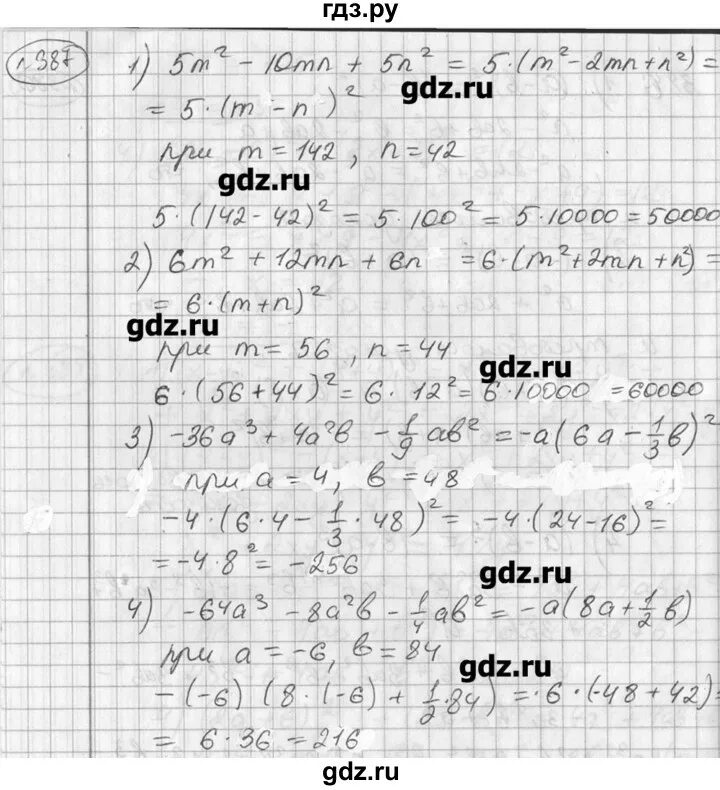 гдз.ру
n.987 1) 5m² - 10mn + 5n² = 5·(m²-2mn+n²)=
= 5·(m-n)²
gdz.ru
при m=142, n=42
gdz.ru
5·(142-42)² = 5·100² = 5·10000=50000
2) 6m² + 12mn + 6n = 6·(m²+2mn+n²)=
= 6·(m+n)²
gdz.ru
при m=56, n=44
gdz.ru
6·(56+44)² = 6·12² = 6·10000 =60000
3) -36a³ + 4a²b - 1/9 ab² = -a(6a - 1/3 b)²
при a=4, b=48
-4·(6·4 - 1/3·48)² = -4·(24-16)² =
= -4·8² = -256
gdz.ru
4) -64a³ - 8a²b - 1/4 ab² = -a(8a + 1/2 b)
при a=-6, b=84
gdz.ru
-(-6) (8·(-6) + 1/2·84) = 6·(-48+42)=
= 6·36 = 216
gdz.ru